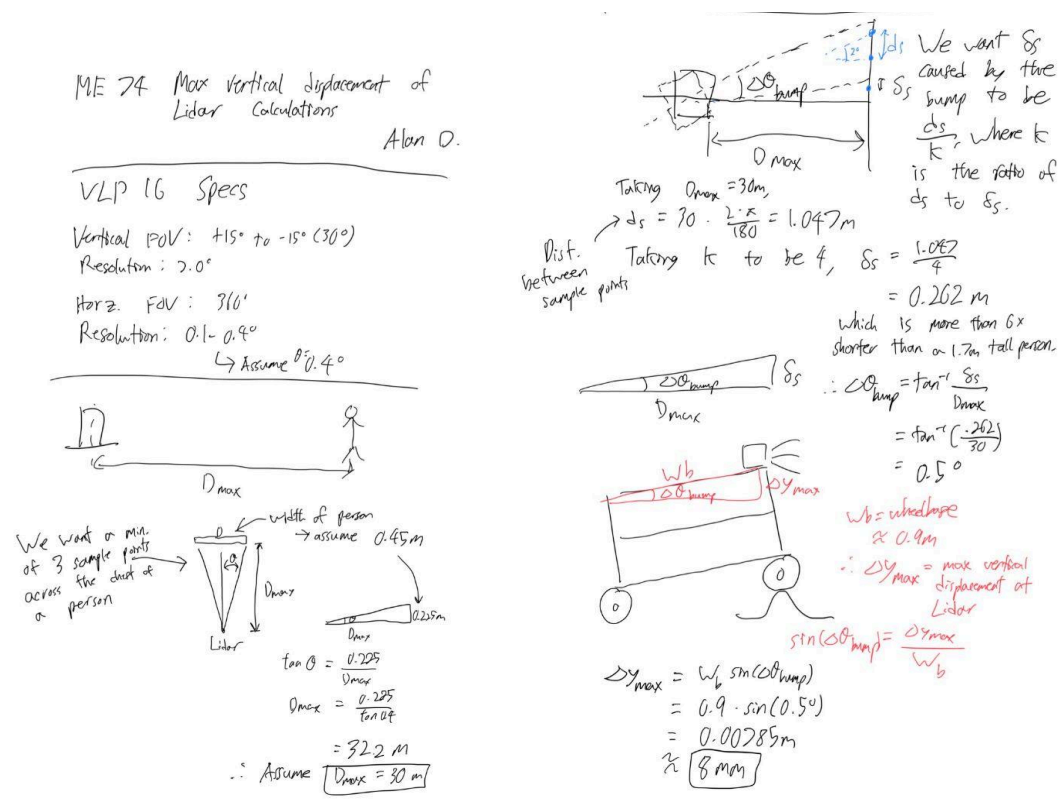 ME 74 Max vertical displacement of
Lidar Calculations
Alan O.
VLP 16 Specs
Vertical FOV: +15° to -15° (30°)
Resolution: 2.0°
Horz. FOV: 360°
Resolution: 0.1-0.4°
↳ Assume θ=0.4°
Dmax
We want a min.
of 3 sample points
across the chest of
a person
width of person
→ assume 0.45m
θ
Dmax
Lidar
θ
Dmax
0.225m
tan θ = 0.225/Dmax
Dmax = 0.225/tan 0.4
= 32.2 m
∴ Assume Dmax = 30 m
Δθbump
2°
ds
δs
Dmax
We want δs
caused by the
bump to be
ds/k, where k
is the ratio of
ds to δs.
Taking Dmax = 30m,
ds = 30 · 2·π/180 = 1.047m
Dist.
between
sample points
Taking k to be 4, δs = 1.047/4
= 0.262 m
which is more than 6x
shorter than a 1.7m tall person.
Δθbump
δs
Dmax
∴ Δθbump = tan⁻¹ δs/Dmax
= tan⁻¹(.262/30)
= 0.5°
Wb
Δθbump
Δymax
Wb = wheelbase
≈ 0.9m
∴ Δymax = max vertical
displacement at
Lidar
sin(Δθbump) = Δymax/Wb
Δymax = Wb sin(Δθbump)
= 0.9 · sin(0.5°)
= 0.00785m
≈ 8 mm